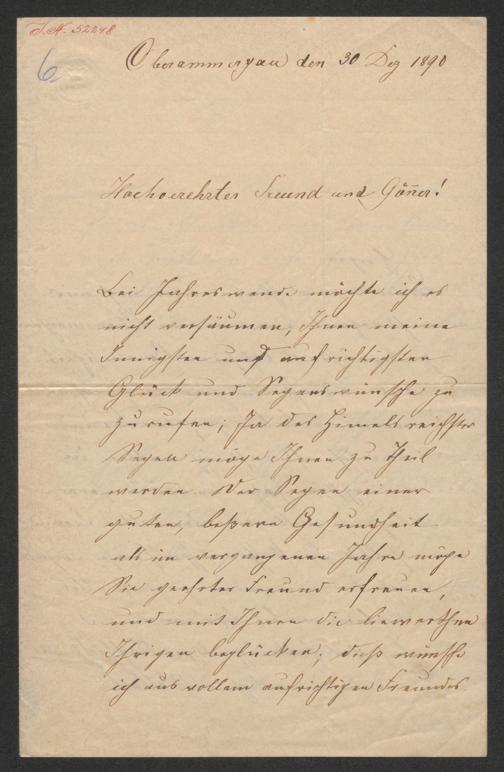 I.N. 52248
6
Oberammergau den 30 Dez 1890
Hochverehrter Freund und Gönner!
Bei Jahreswende möchte ich es
nicht versäumen, Ihnen meine
Innigsten und aufrichtigsten
Glück und Segenswünsche zu
zurufen; Ja des Himels reichster
Segen möge Ihnen zu Theil
werden. Der Segen einer
guten, beßern Gesundheit
als im vergangenen Jahre möge
Sie geehrter Freund erfreuen,
und mit Ihnen die liewerthen
Ihrigen beglücken; dieß wünsche
ich aus vollem aufrichtigen Freundes